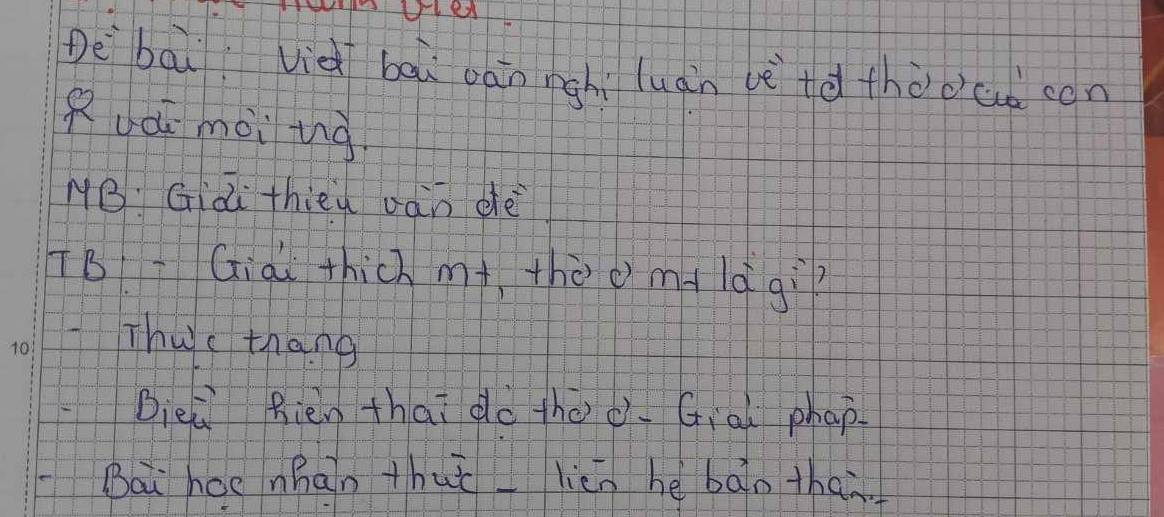 Đề bài: Viết bài văn nghị luận về tđ thờ ơ của con
R với môi trg.
MB: Giới thiệu vấn đề.
TB: - Giải thích mt, thờ ơ mt là gì?
- Thực trạng
10
- Biểu hiện thái độ thờ ơ - Giải pháp -
- Bài học nhận thức - liên hệ bản thân. -